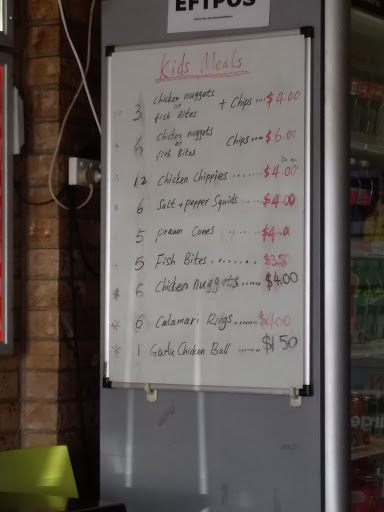 EFTPOS
Kids Meals
3 Chicken nuggets or fish Bites + Chips ... $4.00
6 Chicken nuggets or Fish Bites Chips .... $6.00
12 Chicken Chippies ...... $4.00
6 Salt + pepper Squids ..... $4.00
5 prawn Cones
5 Fish Bites . . . . . . .
* 6 Chicken nuggets ..... $4.00
* 6 Calamari Rings .......
* 1 Garlic Chicken Ball ...... $1.50